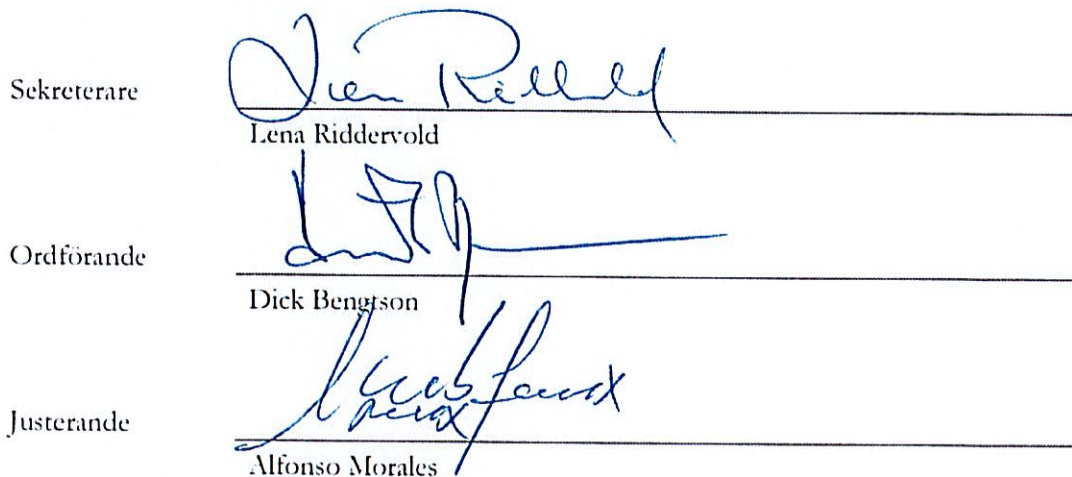 Sekreterare
Lena Riddervold
Ordförande
Dick Bengtson
Justerande
Alfonso Morales